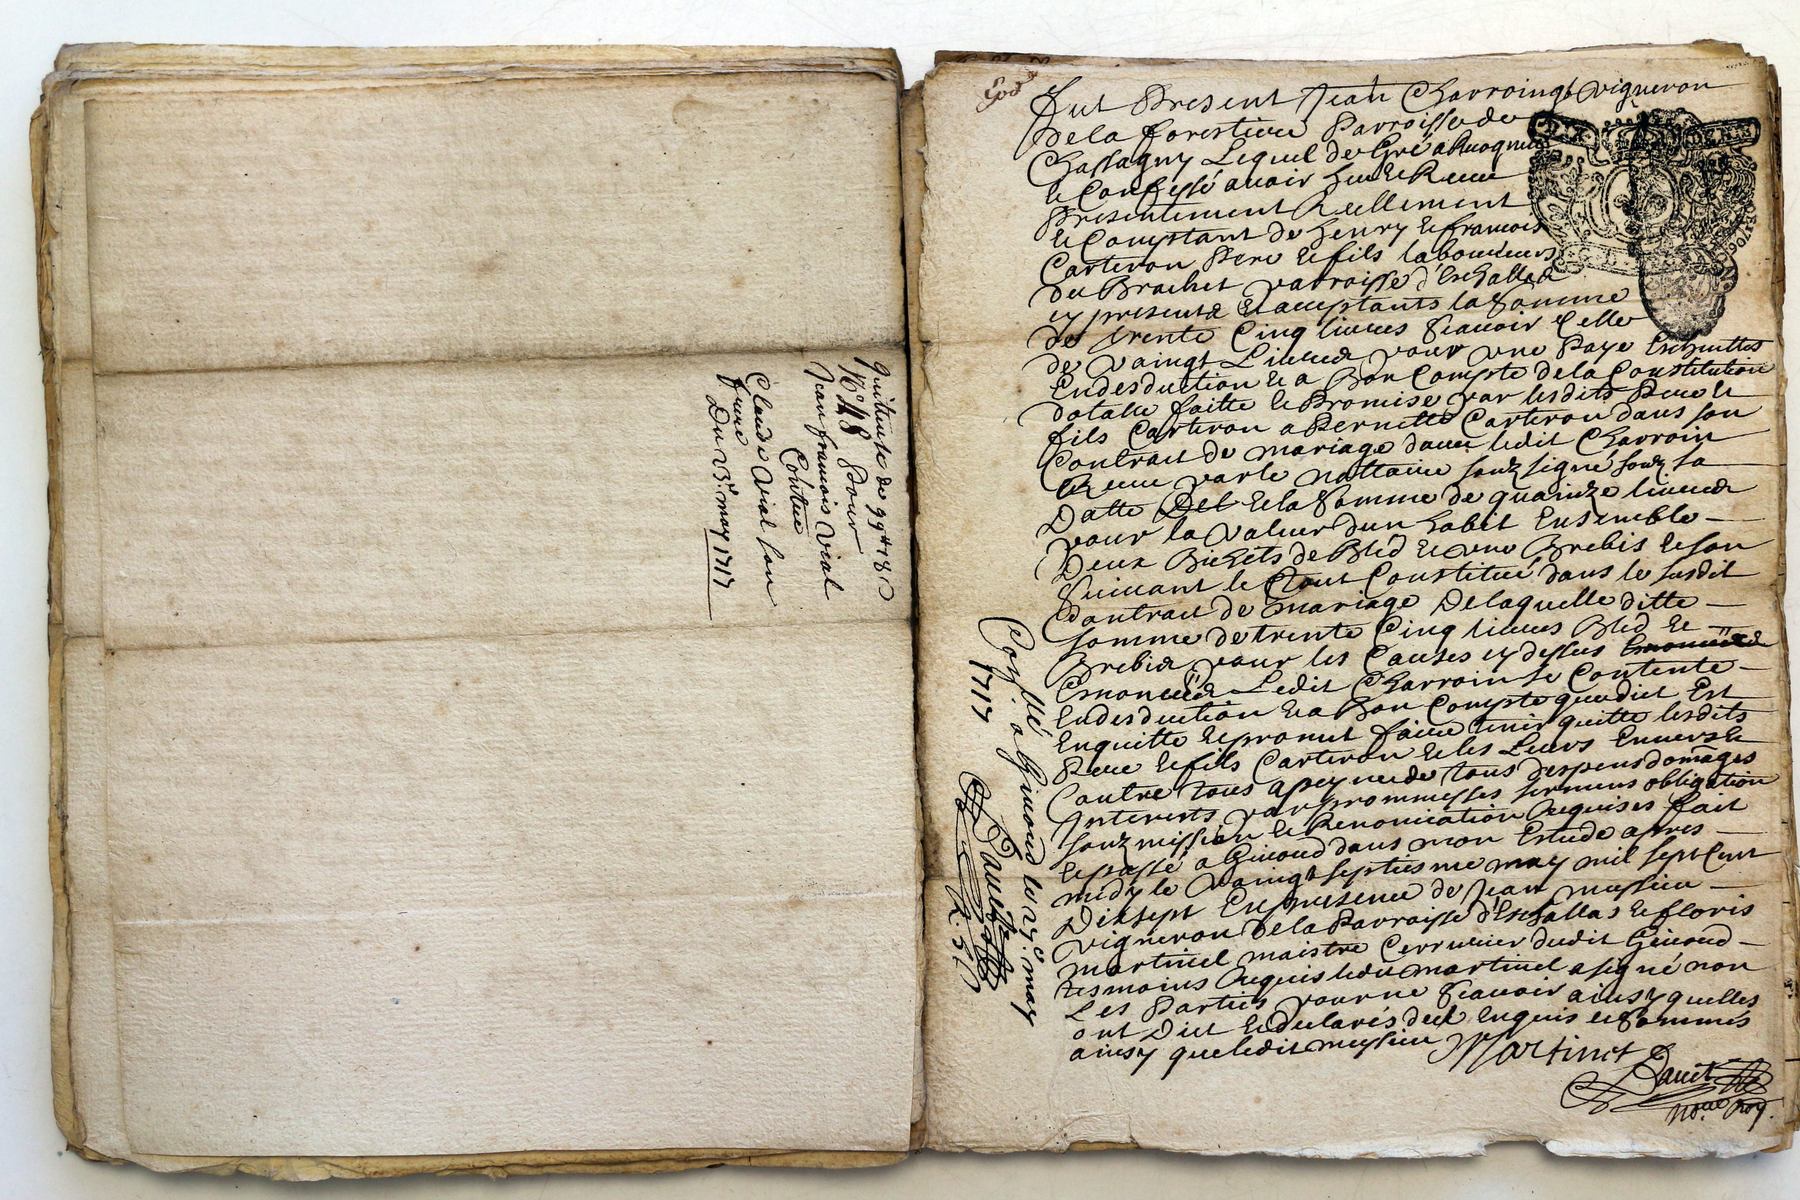 Quittance de 99# 18 s
N° 48 pour
Jean francois Vial
Contre
Claude Vial son
frere
Du 23e may 1717
fut Present Jean Charroin vigneron
De la forestiere Parroisse de
Chassagny Lequel de Gré a Recognu
et Confessé avoir heu et Receu
Presentement Reellement
et Comptant de henry et francois
Carteron Pere et fils laboureurs
du Brachet parroisse d'Eschallas
cy presents et acceptants la somme
de trente Cinq livres scavoir Celle
de vaingt Livres pour une Paye Escheutte
En desduction et a Bon Compte de la Constitution
dotalle faitte et Promise par lesdits Pere et
fils Carteron a Pernette Carteron dans son
Contrait de mariage d'avec ledit Charroin
Receu par le nottaire soubzsigné soubz sa
Datte et la somme de quainze livres
pour la valeur d'un habit Ensemble
Deux Bichets de Bled et une Brebis et son
suivant le tout Constitué dans le susdit
Contrait de mariage De laquelle ditte
somme de trente Cinq livres Bled et
Brebis pour les Causes cy dessus
Enoncées Ledit Charroin se Contente
En desduction et a Bon Compte que dict Est
Enquitte et promet faire tenir quitte lesdits
Pere et fils Carteron et les Leurs Envers et
Contre tous a peyne de tous despens domages
Interests par prommesses serments obligation
soubzmission et Renonciation Requises fait
et passé a Givord dans mon Estude apres
midy le vaingt septiesme may mil sept Cent
Dixsept En presence de Jean messieu
vigneron de la Parroisse d'Eschallas et floris
martinet maistre Cerrurier dudit Givord
tesmoins Requis ledit martinet a signé non
Les Parties pour ne scavoir ainsy quelles
ont Dict et declarés de ce Enquis et sommés
ainsy que ledit messieu
Martinet
not.re Roy.
Con.llé a Givord le 27e may
1717